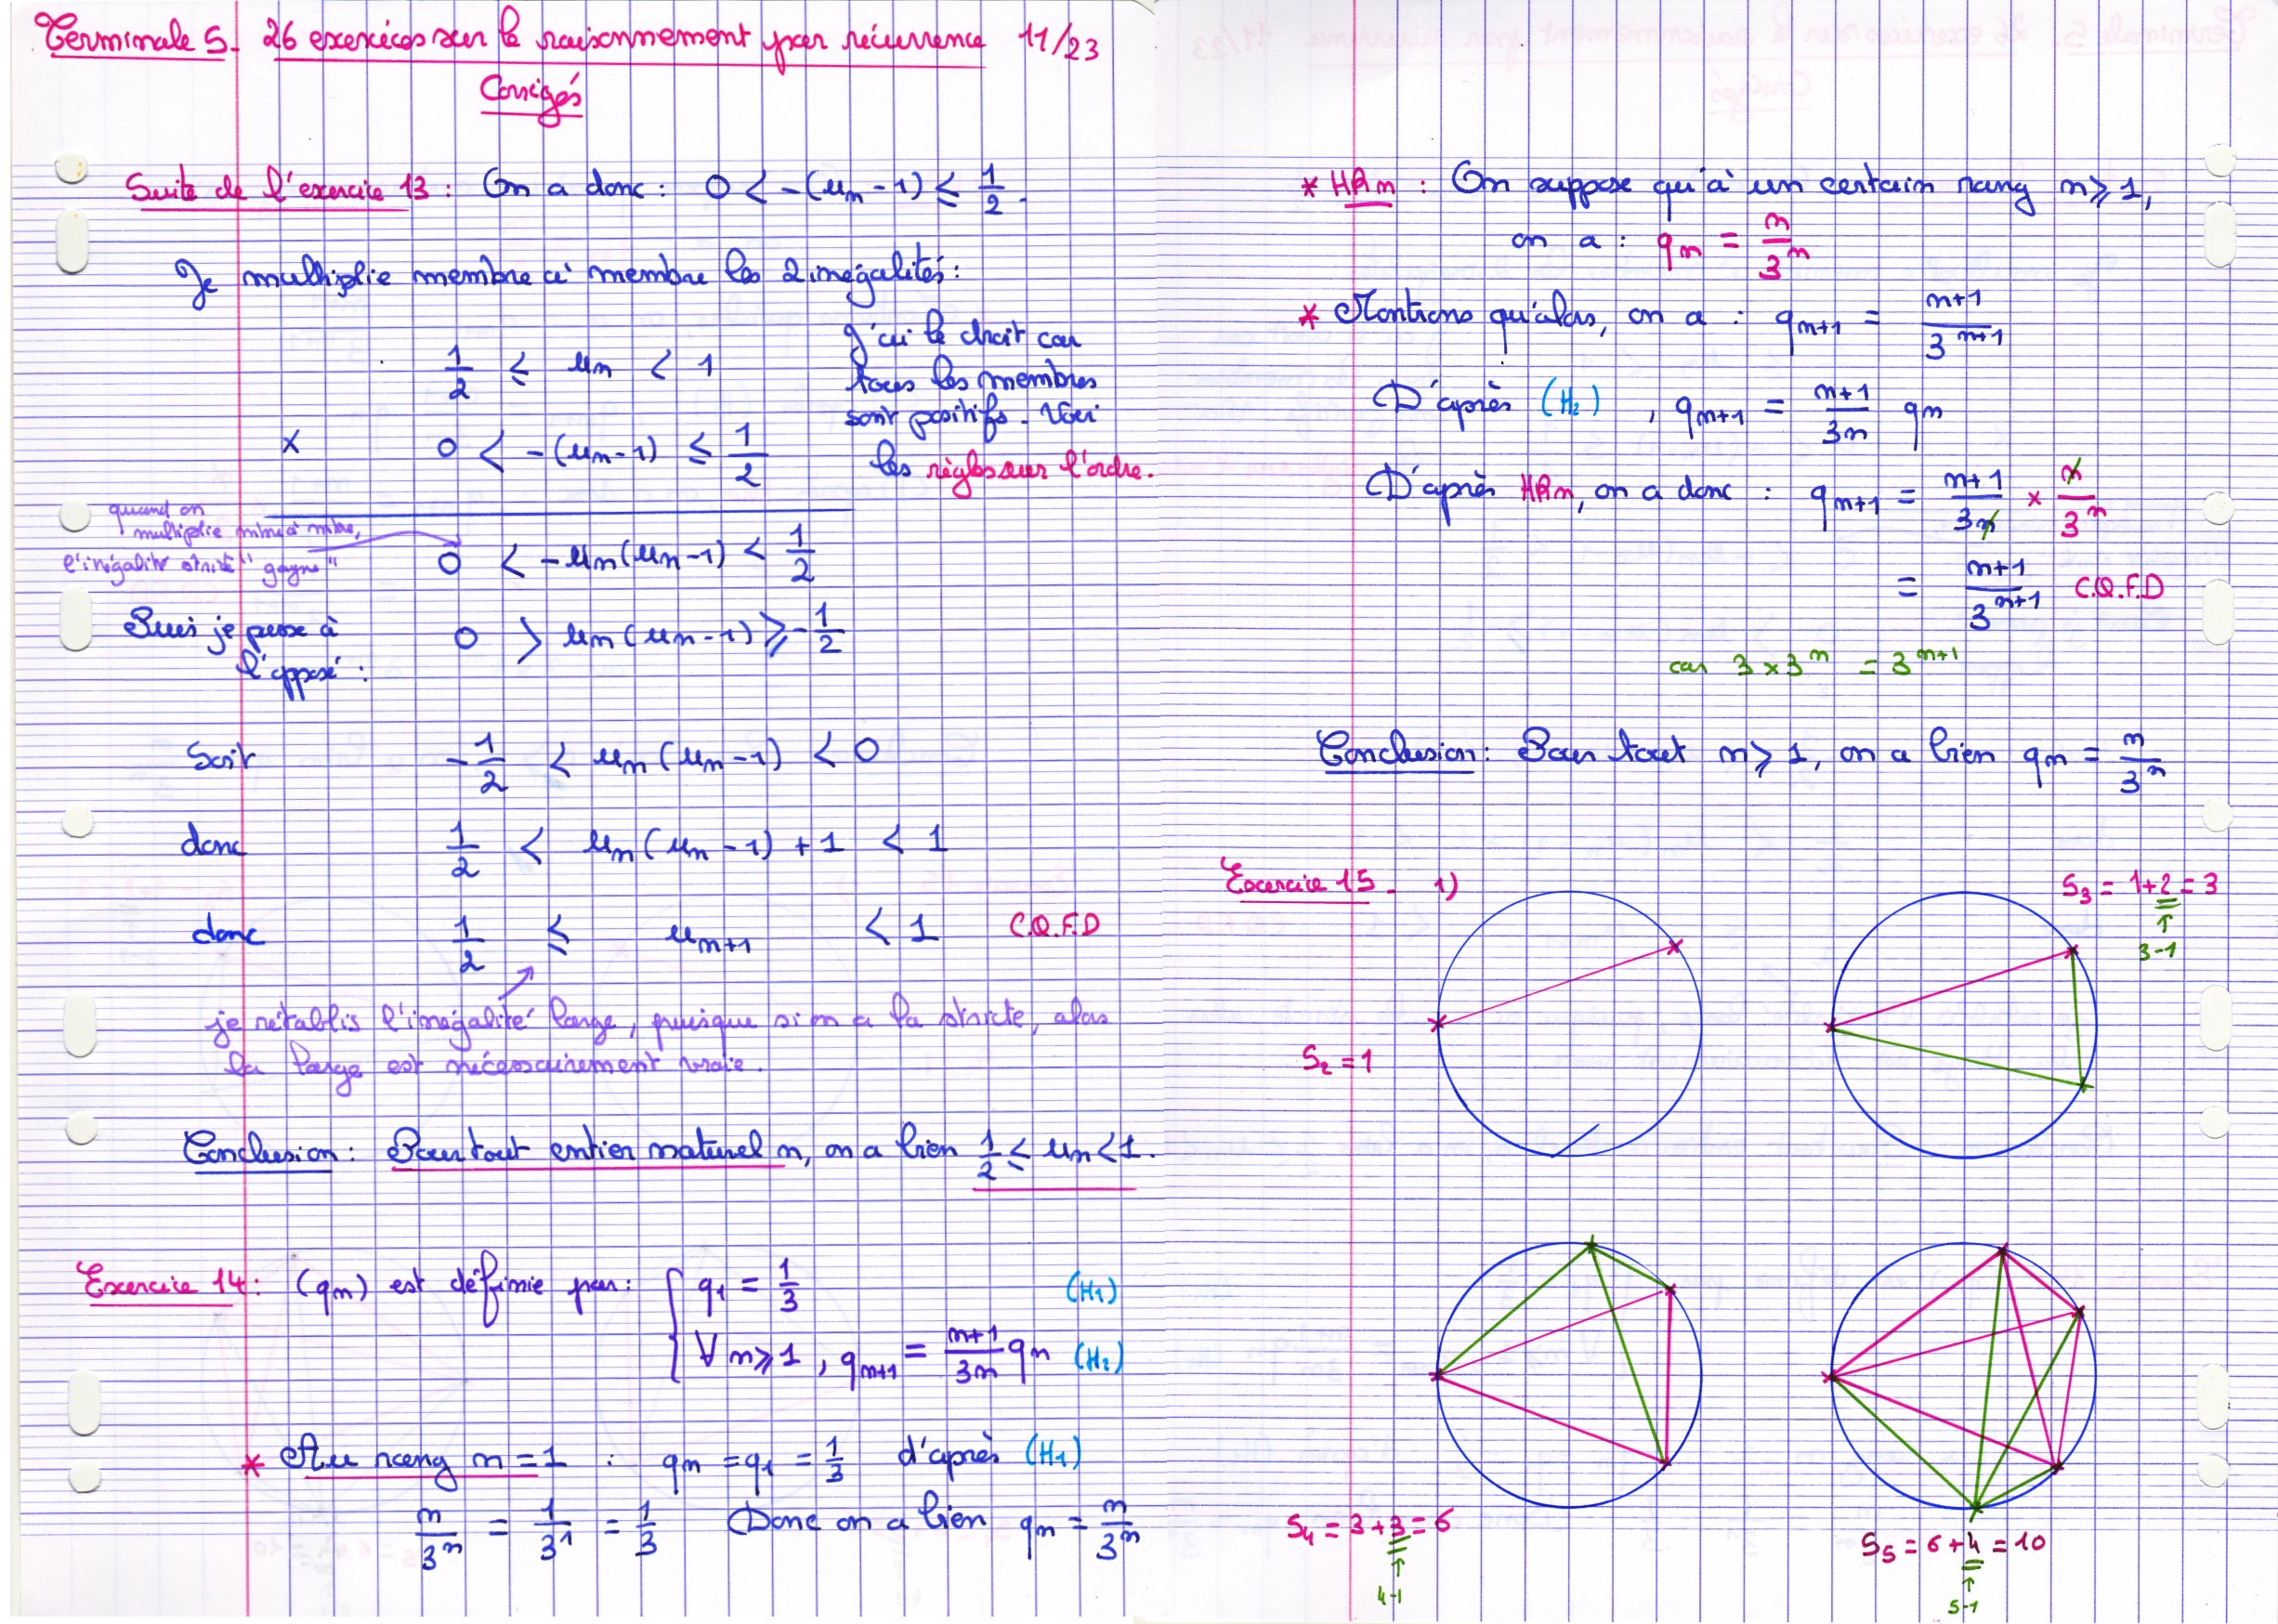 Terminale S. 26 exercices sur le raisonnement par récurrence 11/23
Corrigés
Suite de l'exercice 13 : On a donc : 0 < -(un - 1) ≤ 1/2.
Je multiplie membre à membre les 2 inégalités :
1/2 ≤ un < 1
J'ai le droit car
tous les membres
sont positifs. Voir
les règles sur l'ordre.
× 0 < -(un-1) ≤ 1/2
quand on
multiplie mbre à mbre,
l'inégalité stricte "gagne"
0 < -un(un-1) < 1/2
Puis je passe à
l'opposé :
0 > un(un-1) ≥ -1/2
Soit -1/2 < un(un-1) < 0
donc 1/2 < un(un-1) + 1 < 1
donc 1/2 ≤ un+1 < 1 C.Q.F.D
je rétablis l'inégalité large, puisque si on a la stricte, alors
la large est nécessairement vraie.
Conclusion : Pour tout entier naturel n, on a bien 1/2 ≤ un < 1.
Exercice 14 : (qn) est définie par : { q1 = 1/3 (H1)
∀ n ≥ 1, qn+1 = (n+1)/3n qn (H2)
* Au rang n = 1 : qn = q1 = 1/3 d'après (H1)
n/3^n = 1/3^1 = 1/3 Donc on a bien qn = n/3^n
* HRn : On suppose qu'à un certain rang n ≥ 1,
on a : qn = n/3^n
* Montrons qu'alors, on a : qn+1 = (n+1)/3^(n+1)
D'après (H2), qn+1 = (n+1)/3n qn
D'après HRn, on a donc : qn+1 = (n+1)/3n × n/3^n
= (n+1)/3^(n+1) C.Q.F.D
car 3 × 3^n = 3^(n+1)
Conclusion : Pour tout n ≥ 1, on a bien qn = n/3^n
Exercice 15 - 1)
S2 = 1
S3 = 1+2 = 3
3-1
S4 = 3+3 = 6
4-1
S5 = 6+4 = 10
5-1